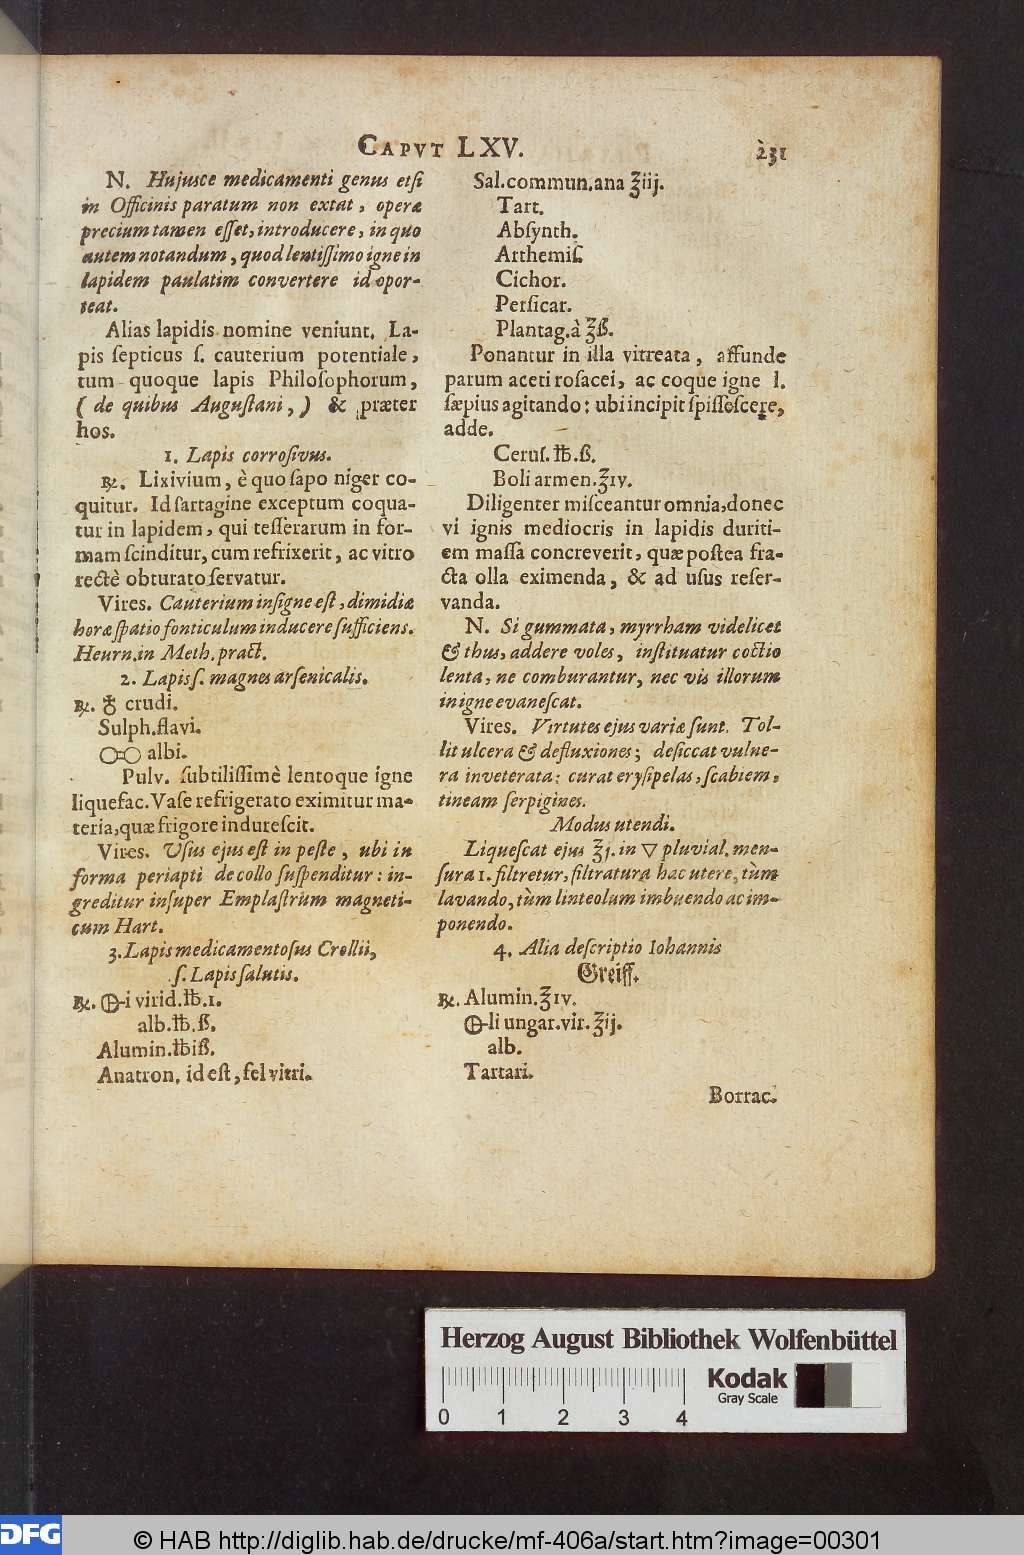 CAPVT LXV.
231
N. Hujusce medicamenti genus etſi
in Officinis paratum non extat, operæ
precium tamen eſſet, introducere, in quo
autem notandum, quod lentiſſimo igne in
lapidem paulatim convertere id opor-
teat.
Alias lapidis nomine veniunt. La-
pis ſepticus ſ. cauterium potentiale,
tum quoque lapis Philoſophorum,
(de quibus Auguſtani,) & præter
hos.
1. Lapis corroſivus.
℞. Lixivium, è quo ſapo niger co-
quitur. Id ſartagine exceptum coqua-
tur in lapidem, qui teſſerarum in for-
mam ſcinditur, cum refrixerit, ac vitro
rectè obturato ſervatur.
Vires. Cauterium inſigne eſt, dimidiæ
horæ ſpatio fonticulum inducere ſufficiens.
Heurn. in Meth. pract.
2. Lapis ſ. magnes arſenicalis.
℞. ♁ crudi.
Sulph. flavi.
albi.
Pulv. ſubtiliſſimè lentoque igne
liquefac. Vaſe refrigerato eximitur ma-
teria, quæ frigore indureſcit.
Vires. Uſus ejus eſt in peſte, ubi in
forma periapti de collo ſuſpenditur: in-
greditur inſuper Emplaſtrum magneti-
cum Hart.
3. Lapis medicamentoſus Crollii,
ſ. Lapis ſalutis.
℞. 🜖-i virid. ℔. 1.
alb. ℔. ß.
Alumin. ℔iß.
Anatron. id eſt, fel vitri.
Sal. commun. ana ℥iij.
Tart.
Abſynth.
Arthemiſ.
Cichor.
Perſicar.
Plantag. à ℥ß.
Ponantur in illa vitreata, affunde
parum aceti roſacei, ac coque igne l.
ſæpius agitando: ubi incipit ſpiſſeſcere,
adde.
Ceruſ. ℔. ß.
Boli armen. ℥ıv.
Diligenter miſceantur omnia, donec
vi ignis mediocris in lapidis duriti-
em maſſa concreverit, quæ poſtea fra-
cta olla eximenda, & ad uſus reſer-
vanda.
N. Si gummata, myrrham videlicet
& thus, addere voles, inſtituatur coctio
lenta, ne comburantur, nec vis illorum
in igne evaneſcat.
Vires. Virtutes ejus variæ ſunt. Tol-
lit ulcera & defluxiones; deſiccat vulne-
ra inveterata: curat eryſipelas, ſcabiem,
tineam ſerpigines.
Modus utendi.
Liqueſcat ejus ℥j. in ▽ pluvial. men-
ſura 1. filtretur, filtratura hac utere, tùm
lavando, tùm linteolum imbuendo ac im-
ponendo.
4. Alia deſcriptio Iohannis
Greiff.
℞. Alumin. ℥ıv.
🜖-li ungar. vir. ℥ij.
alb.
Tartari.
Borrac.
Herzog August Bibliothek Wolfenbüttel
Kodak
Gray Scale
0 1 2 3 4
DFG
© HAB http://diglib.hab.de/drucke/mf-406a/start.htm?image=00301